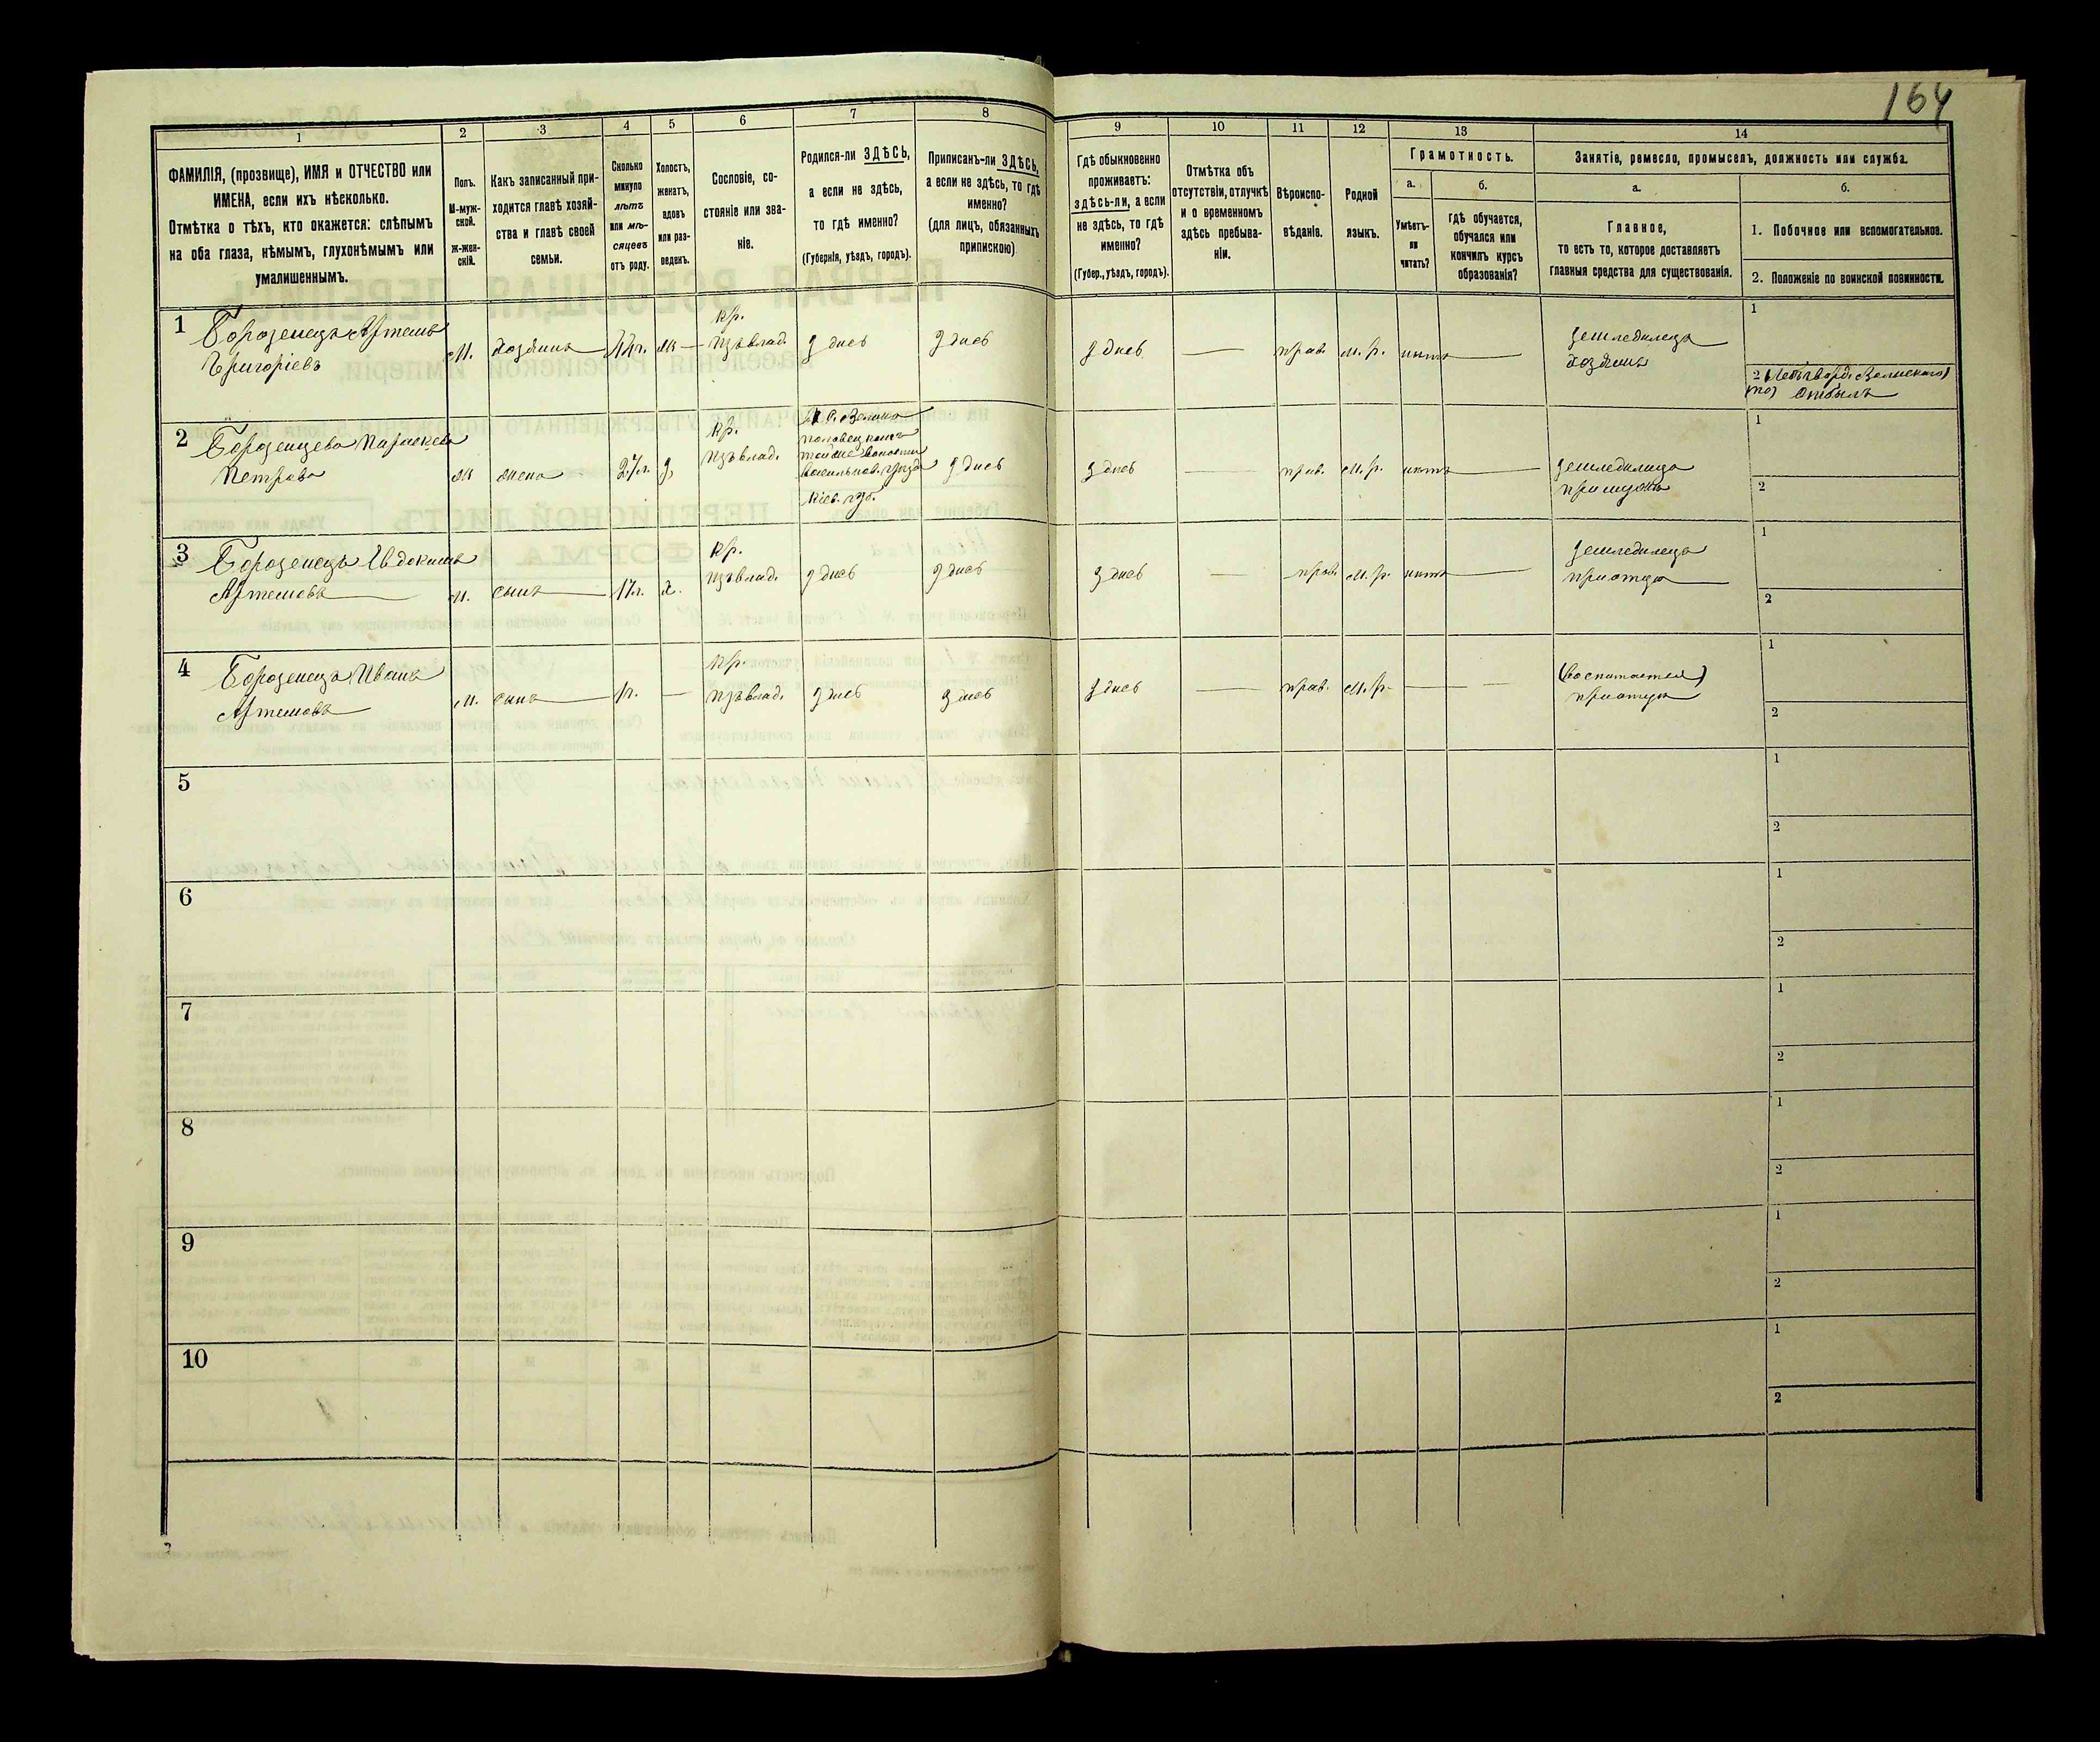 164
1
2
3
4
5
6
7
8
ФАМИЛІЯ, (прозвище), ИМЯ и ОТЧЕСТВО или
ИМЕНА, если ихъ нѣсколько.
Отмѣтка о тѣхъ, кто окажется: слѣпымъ
на оба глаза, нѣмымъ, глухонѣмымъ или
умалишеннымъ.
Полъ.
М-муж-
ской.
ж-жен-
скій.
Какъ записанный при-
ходится главѣ хозяй-
ства и главѣ своей
семьи.
Сколько
минуло
лѣтъ
или мѣ-
сяцевъ
отъ роду.
Холостъ,
женатъ,
вдовъ
или раз-
веденъ.
Сословіе, со-
стояніе или зва-
ніе.
Родился-ли ЗДѢСЬ,
а если не здѣсь,
то гдѣ именно?
(Губернія, уѣздъ, городъ).
Приписанъ-ли ЗДѢСЬ,
а если не здѣсь, то гдѣ
именно?
(для лицъ, обязанныхъ
припискою)
9
10
11
12
13
14
Гдѣ обыкновенно
проживаетъ:
здѣсь-ли, а если
не здѣсь, то гдѣ
именно?
(Губер., уѣздъ, городъ).
Отмѣтка объ
отсутствіи, отлучкѣ
и о временномъ
здѣсь пребыва-
ніи.
Вѣроиспо-
вѣданіе.
Родной
языкъ.
Грамотность.
а.
б.
Умѣетъ-
ли
читать?
гдѣ обучается,
обучался или
кончилъ курсъ
образованія?
Занятіе, ремесло, промыселъ, должность или служба.
а.
б.
Главное,
то есть то, которое доставляетъ
главныя средства для существованія.
1. Побочное или вспомогательное.
2. Положеніе по воинской повинности.
1
Бороденецъ Артемъ
Григоріевъ
м.
хозяинъ
44г.
ж
кр.
изъ влад.
здѣсь
здѣсь
здѣсь
—
прав.
м. р.
нѣтъ
земледѣлецъ
хозяинъ
1
2
отбылъ
2
Петрова
ж
жена
кр.
изъ влад.
Васильков. уѣзда
Кіев. губ.
здѣсь
здѣсь
—
прав.
м. р.
нѣтъ
при мужѣ
1
2
3
Бороденецъ Евдокимъ
Артемовъ
м.
сынъ
17г.
х.
кр.
изъ влад.
здѣсь
здѣсь
здѣсь
—
прав.
м. р.
нѣтъ
земледѣлецъ
при отцѣ
1
2
4
Бороденецъ Иванъ
Артемовъ
м.
сынъ
1г.
—
кр.
изъ влад.
здѣсь
здѣсь
здѣсь
—
прав.
м. р.
—
—
при отцѣ
1
2
5
1
2
6
1
2
7
1
2
8
1
2
9
1
2
10
1
2
2